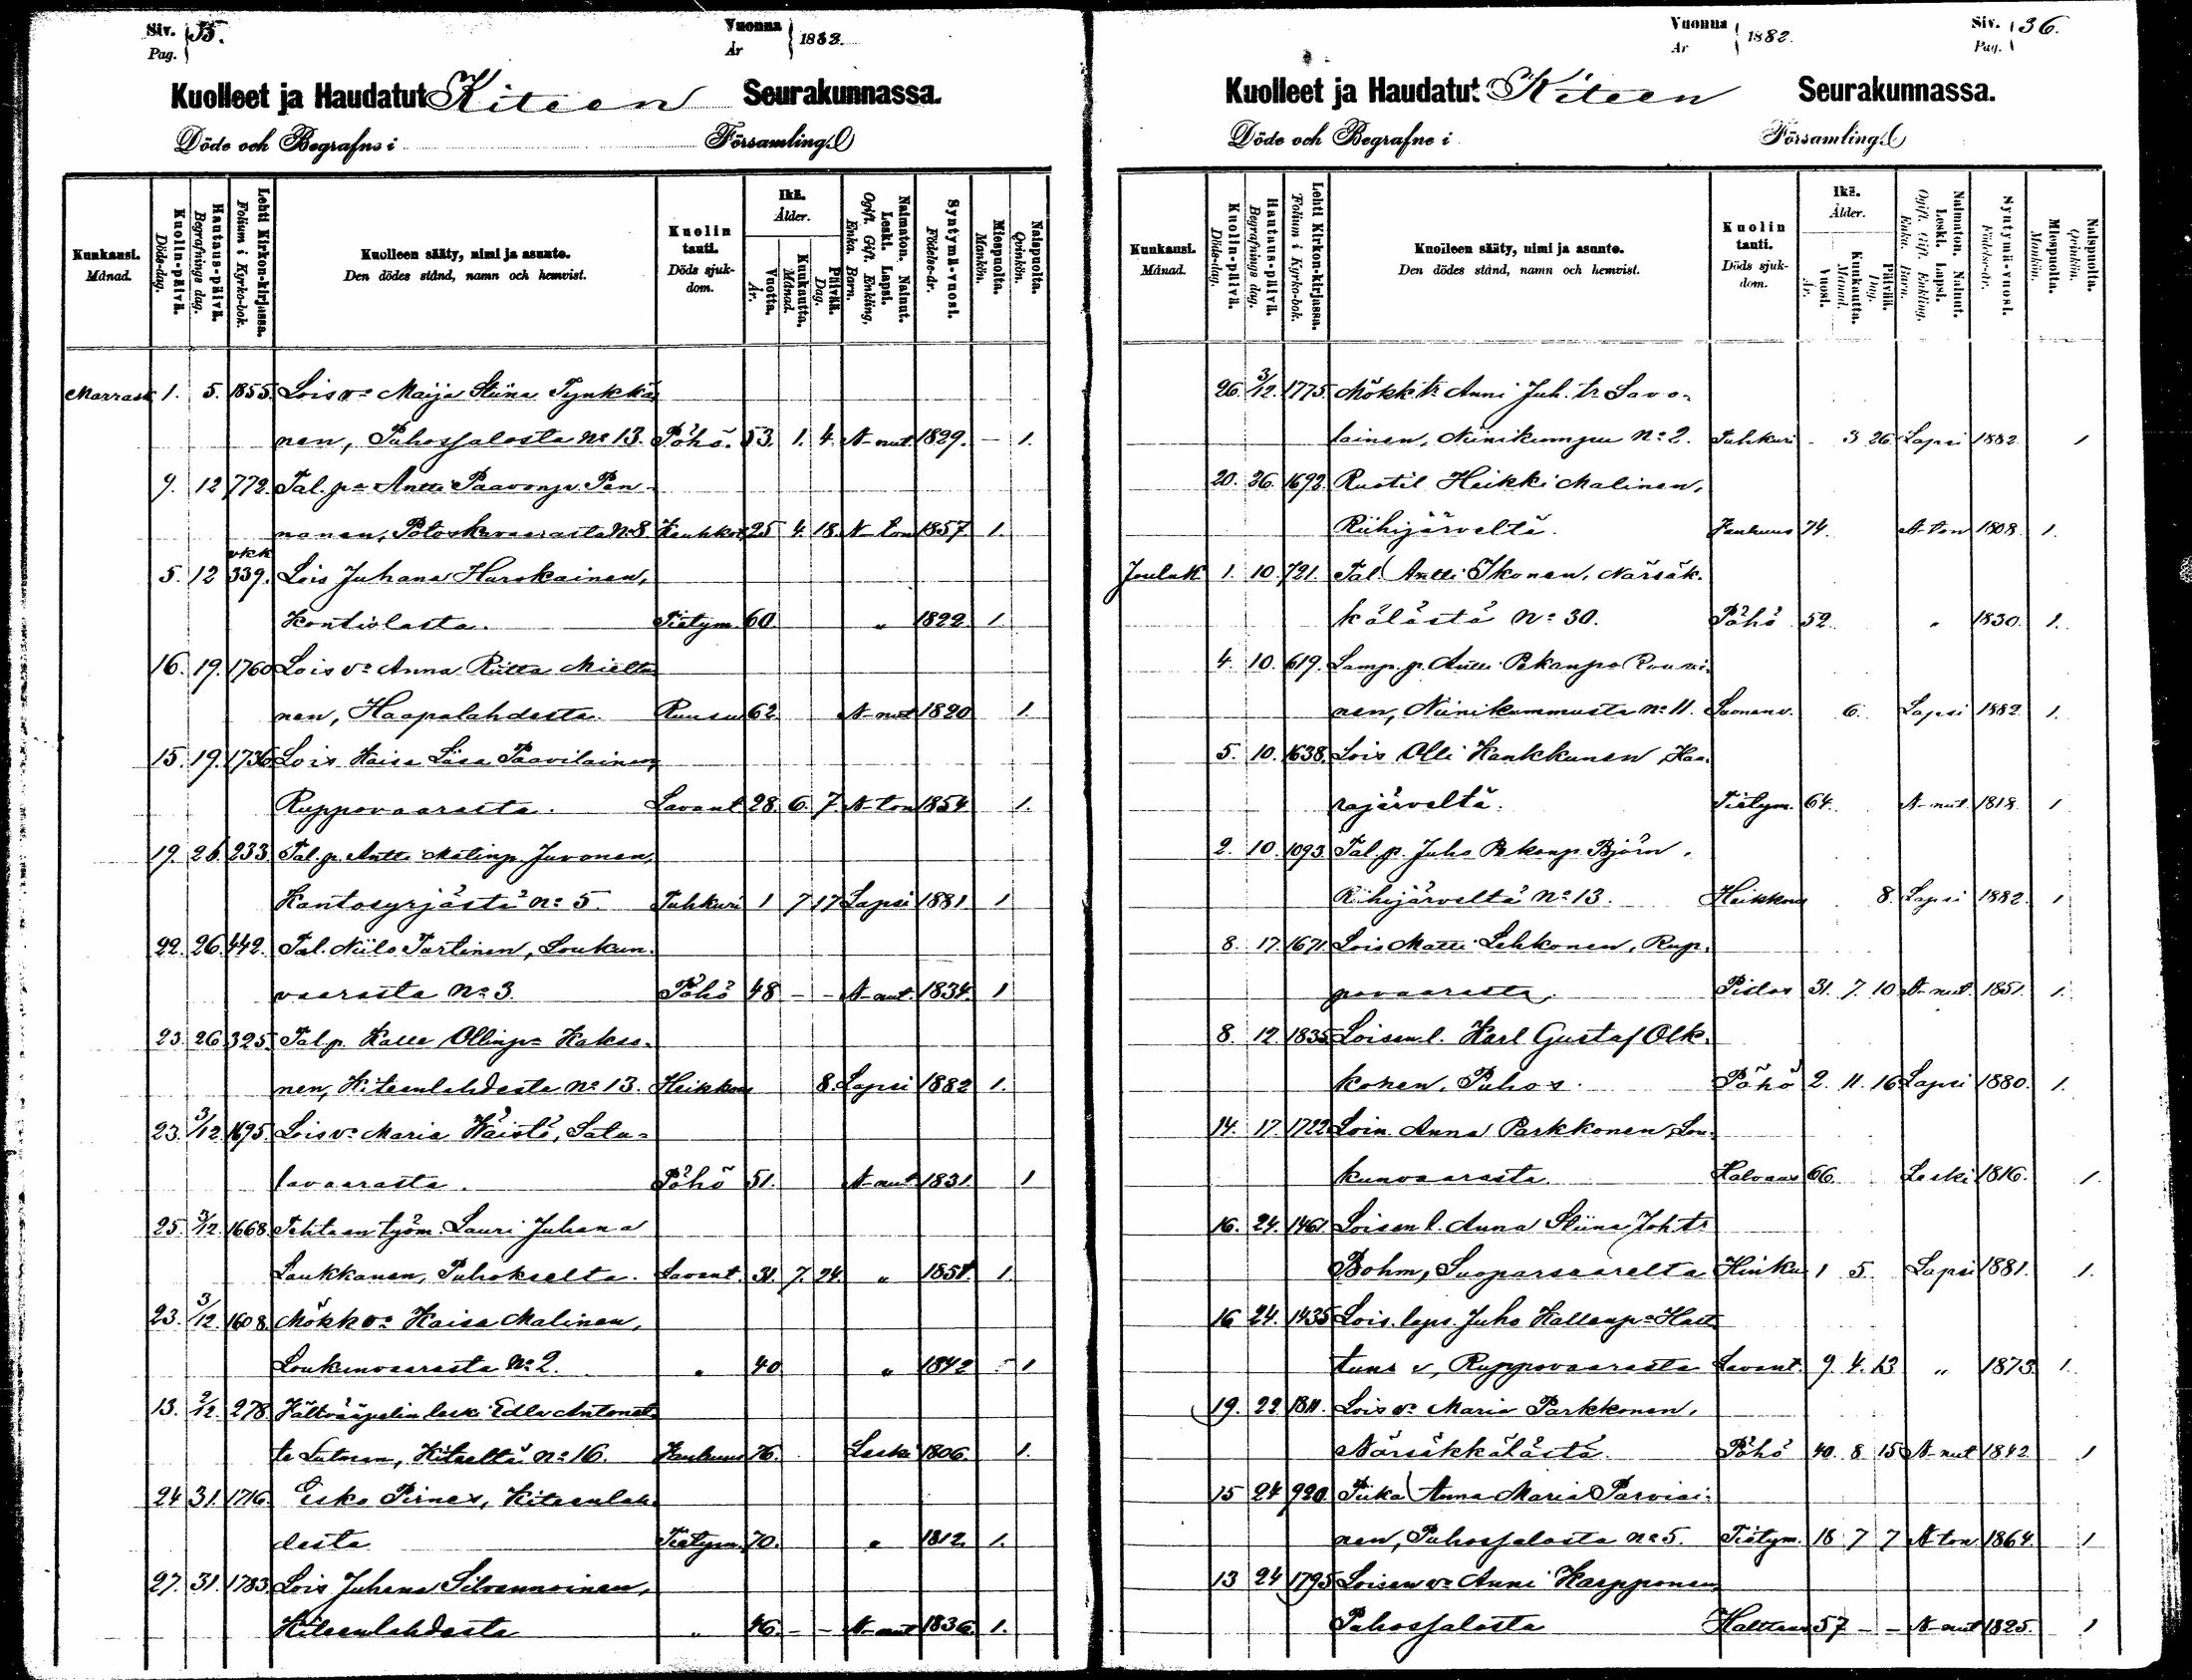 Siv. Pag. 35.
Vuonna År 1882.
Kuolleet ja Haudatut Kiteen Seurakunnassa.
Döde och Begrafne i Församling.
Kuukausi. Månad.
Kuolin-päivä. Döds-dag.
Hautaus-päivä. Begrafnings dag.
Lehti Kirkon-kirjassa. Folium i Kyrko-bok.
Kuolleen sääty, nimi ja asunto. Den dödes stånd, namn och hemvist.
Kuolin tauti. Döds sjuk-dom.
Ikä. Ålder.
Vuotta. År.
Kuukautta. Månad.
Päivää. Dag.
Naimaton. Nainut. Leski. Lapsi. Ogift. Gift. Enkling, Enka. Barn.
Syntymä-vuosi. Födelse-år.
Miespuolta. Mankön.
Naispuolta. Qvinkön.
Marrask 1. 5. 1855. Lois v:o Maija Stiina Tynkkä
nen, Puhossalosta No 13. Pöhö. 53. 1. 4. N-nut 1829. - 1.
9. 12 772. Tal. p:a Antti Paavonp. Pen
nanen, Potoskavaarasta No 8 25 4. 18. N-ton 1857 1.
5. 12 vkk 339. Lois Juhana Hurskainen,
Kontiolasta. Tietym. 60. " 1822 1.
16. 19. 1760 Lois v:o Anna Riitta Mielto
nen, Haapalahdesta. Ruusu 62. N-nut 1820 1.
15. 19. 1736 Lois Kaisa Liisa Paavilainen,
Ruppovaarasta. Lavant. 28. 6. 7. N-ton 1854. 1.
19. 26. 233. Tal. p. Antti Matinp. Juvonen,
Kantosyrjästä No 5. Tuhkuri 1 7 17 Lapsi 1881. 1
22. 26. 442. Tal. Niilo Turtinen, Loukun
vaarasta No 3. Pöhö 48 - - N-nut. 1834. 1
23. 26 325. Tal. p. Kalle Ollinp:a Kakso
nen, Kiteenlahdesta No 13. Heikkous 8. Lapsi 1882 1.
23. 3/12. 1695. Lois v:o Maria Väistö, Satu-
lavaarasta. Pöhö 51. N-nut. 1831. 1
25. 3/12. 1668. Tehtaan työm. Lauri Juhana
Laukkanen, Puhokselta. Lavant. 31. 7. 24. " 1851. 1.
23. 3/12. 1608. Mökk v:o Kaisa Malinen,
Loukunvaarasta No 2. " 40 " 1842 - 1
13. 2/12. 278. Vältvääpelin leski Edla Antonet
te, Kiteeltä No 16. Vanhuus 76. Leski 1806. 1.
24 31. 1716. Esko Pirnes, Kiteenlah
desta Tietym. 70. " 1812. 1.
27. 31. 1783. Lois Juhana Silvennoinen,
Kiteenlahdesta " 46. - - N-nut 1836. 1.
Vuonna År 1882.
Siv. Pag. 36.
Kuolleet ja Haudatut Kiteen Seurakunnassa.
Döde och Begrafne i Församling.
Kuukausi. Månad.
Kuolin-päivä. Döds-dag.
Hautaus-päivä. Begrafnings dag.
Lehti Kirkon-kirjassa. Folium i Kyrko-bok.
Kuolleen sääty, nimi ja asunto. Den dödes stånd, namn och hemvist.
Kuolin tauti. Döds sjuk-dom.
Ikä. Ålder.
Vuosi. År.
Kuukautta. Månad.
Päivää. Dag.
Naimaton. Nainut. Leski. Lapsi. Ogift. Gift. Enkling, Enka. Barn.
Syntymä-vuosi. Födelse-år.
Miespuolta. Mankön.
Naispuolta. Qvinkön.
26. 3/12. 1775. Mökk. tr Anni Juh. tr Savo-
lainen, Niinikumpu No 2. Tuhkuri - 3 26 Lapsi 1882. 1
20. 26. 1692. Rustil Heikki Malinen,
Riihijärveltä. Vanhuus 74. N-ton 1808. 1.
Jouluk 1. 10. 721. Tal. Antti Ikonen, Närsäk-
kälästä No 30. Pöhö 52. " 1830. 1.
4. 10. 619. Lamp. p. Antti Pekanpo
nen, Niinikummusta No 11. 6. Lapsi 1882. 1.
5. 10. 1638. Lois Olli Kankkunen, Haa-
rajärveltä. Tietym. 64. N-nut 1818. 1
2. 10. 1093. Tal. p. Juho Pekanp. Björn,
Riihijärveltä No 13. Heikkous 8. Lapsi 1882. 1
8. 17. 1671. Lois Matti Lehkonen, Rup-
povaarasta. 31. 7. 10 N-nut. 1851. 1.
8. 12. 1835 Loisen l. Karl Gustaf Olk-
konen, Puhos. Pöhö 2. 11. 16 Lapsi 1880. 1.
14. 17 1722 Loin. Anna Parkkonen, Lou-
kunvaarasta. Halvaus 66. Leski 1816. 1.
16. 24. 1461. Loisen l. Anna Stiina Joh. tr
Bohm, Suoparsaarelta Hinku 1 5. Lapsi 1881. 1.
16 24. 1435 Lois. laps. Juho Kallenp:a Hat
tunen, Ruppovaarasta Lavant. 9. 4. 13 " 1873. 1.
19. 22 1811. Lois v:o Maria Parkkonen,
Närsäkkälästä. Pöhö 40. 8 15 N-nut 1842. 1
15 24 920. Piika Anna Maria Parviai-
nen, Puhossalosta No 5. Tietym. 18 7 7 N-ton 1864. 1
13 24 1795 Loisen v:o Anni Karpponen,
Puhossalosta Halttaus 57 - - N-nut 1825. 1